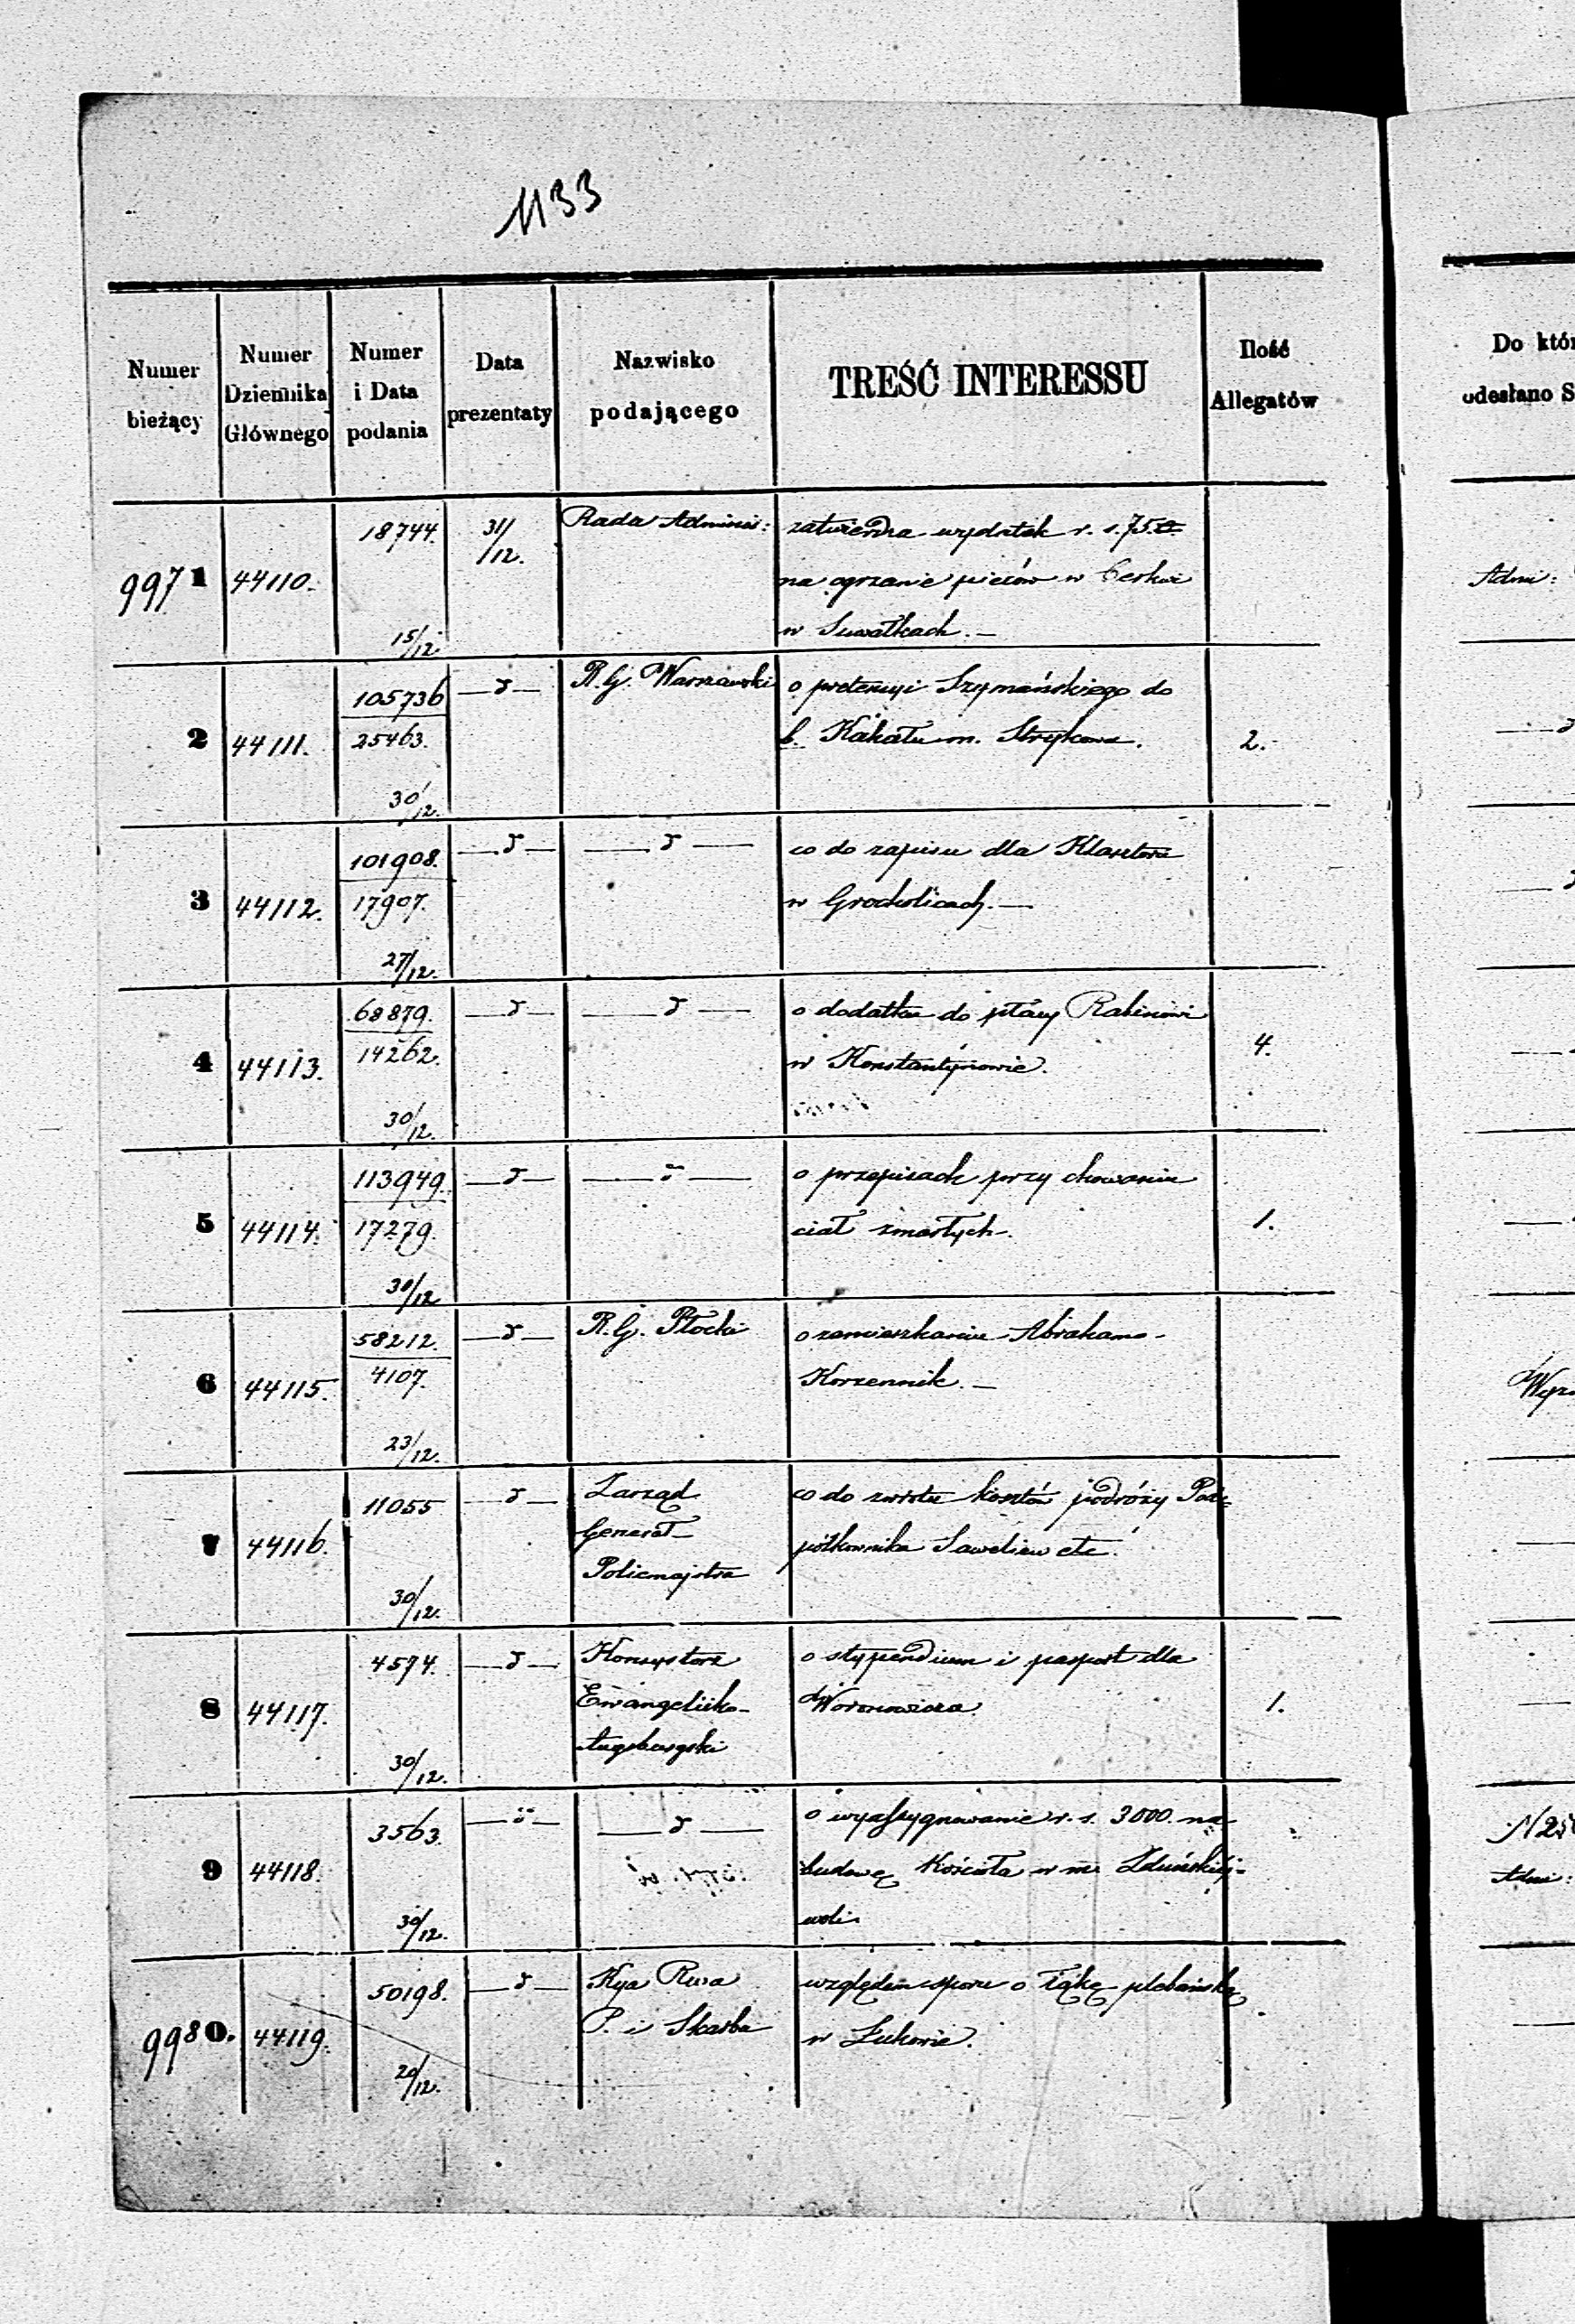 1133
Numer bieżący | Numer Dziennika Głównego | Numer i Data podania | Data prezentaty | Nazwisko podającego | TREŚĆ INTERESSU | Ilość Allegatów
9971 | 44110. | 18744. 15/12 | 31/12. | Rada Adminis: | zatwierdza wydatek r. s. 75.
na ogrzanie pieców w Cerkwi
w Suwałkach. —
2 | 44111. | 105736 25463. 30/12. | — d — | R. G. Warszawski | o pretensyi Szymańskiego do
b. Kahału m. Strykowa. | 2.
3 | 44112. | 101908. 17907. 27/12. | — d — | — d — | co do zapisu dla Klasztoru
w Grocholicach. —
4 | 44113. | 68879. 14262. 30/12. | — d — | — d — | o dodatku do płacy Rabinowi
w Konstantynowie. | 4.
5 | 44114. | 113949. 17279. 30/12 | — d — | — d — | o przepisach przy chowaniu
ciał zmarłych. | 1.
6 | 44115. | 58212. 4107. 23/12. | — d — | R. G. Płocki | o zamieszkaniu Abrahama
Korzennik. —
7 | 44116. | 11055 30/12. | — d — | Zarząd | co do zwrotu kosztów podróży Pod=
Generał | półkownika Saweliew etc.
Policmajstra
8 | 44117. | 4594. 30/12. | — d — | Konsystorz | o stypendium i pasport dla
Ewangelicko- | Woronowicza | 1.
Augsburgski
9 | 44118. | 3563. 30/12. | — d — | — d — | o wyassygnowanie r. s. 3000. na
budowę Kościoła w m. Zduńskiéj-
woli
9980. | 44119. | 50198. 20/12. | — d — | Kya Rwa | względem sporu o łąkę plebańską
P. i Skarbu | w Łukowie.
Do któr
odesłano S
Admi:
Admi: